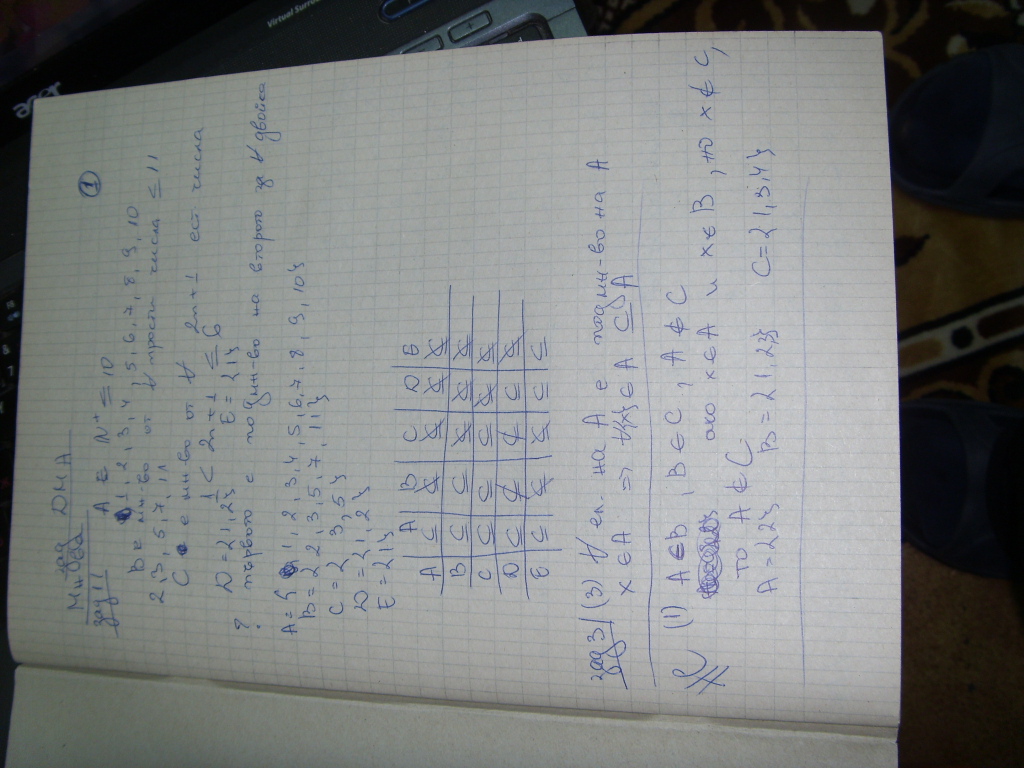 acer
Virtual Surro
①
Мн-ва ДМА
зад 1| A ∈ N⁺ ≤ 10
1, 2, 3, 4, 5, 6, 7, 8, 9, 10
B е мн-во от ∀ прости числа ≤ 11
2, 3, 5, 7, 11
C е мн-во от ∀ 2n+1 ест числа
1 < 2n+1 ≤ 6
D = {1, 2} E = {1}
? първото е подмн-во на второто за ∀ двойка
A = {1, 2, 3, 4, 5, 6, 7, 8, 9, 10}
B = {2, 3, 5, 7, 11}
C = {3, 5}
D = {1, 2}
E = {1}
A B C D E
A ⊆ ⊈ ⊈ ⊈ ⊈
B ⊆ ⊆ ⊈ ⊈ ⊈
C ⊆ ⊆ ⊆ ⊈ ⊈
D ⊆ ⊈ ⊈ ⊆ ⊈
E ⊆ ⊈ ⊈ ⊆ ⊆
зад 3| (3) ∀ ел. на A е подмн-во на A
x ∈ A ⇒ ∀{x} ∈ A ⊆ A
(1) A ∈ B, B ∈ C, A ∉ C
ако x ∈ A и x ∈ B, но x ∉ C,
то A ∉ C
A = {2} B = {1, 2} C = {1, 3, 4}